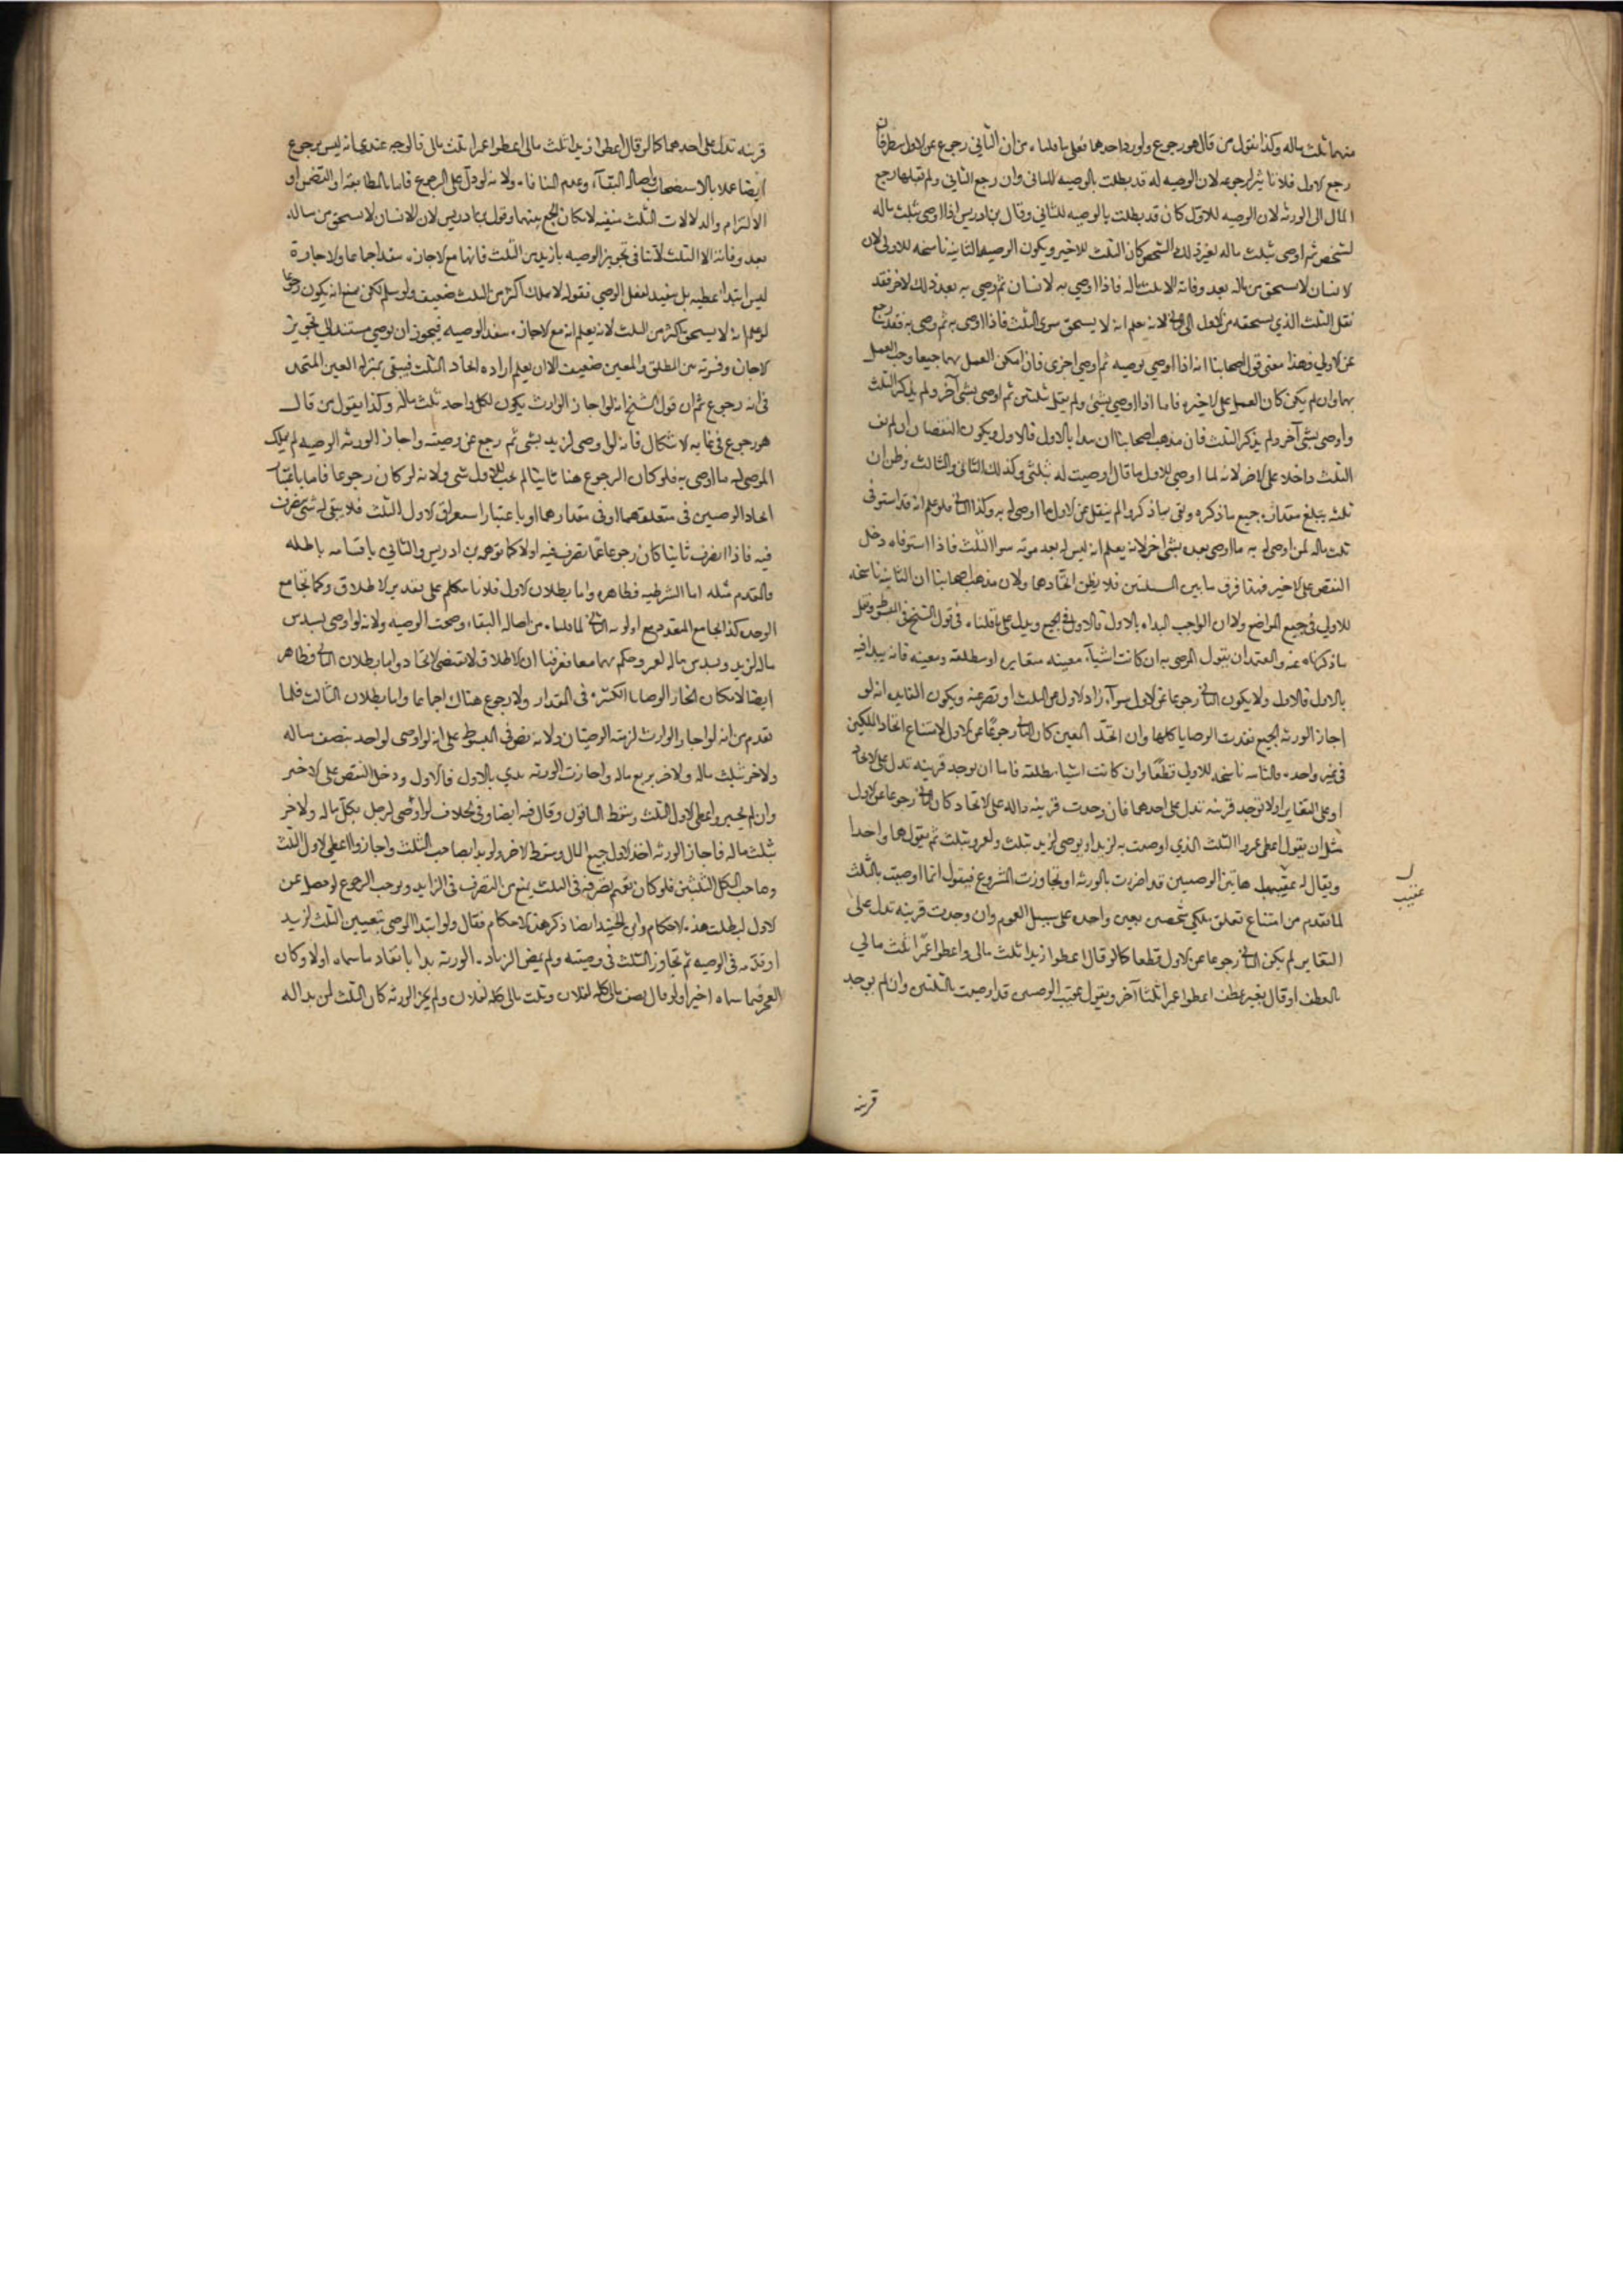 منهما ثلث ماله وكذا نقول من قال هو رجوع ولو رد احدهما فعلى ما قلناه من ان الثاني رجوع عن الاول
رجع الاول فلا تاثير لرجوعه لان الوصيه له قد بطلت بالوصيه للثاني وان رجع الثاني ولم يقبلها رجع
المال الى الورثه لان الوصيه للاول كان قد بطلت بالوصيه للثاني وقال بن ادريس اذا اوصى بثلث ماله
لشخص ثم اوصى بثلث ماله لغير ذلك الشخص كان الثلث للاخير ويكون الوصيه الثانيه ناسخه للاولى لان
الانسان لا يستحق من ماله بعد وفاته الا ثلث ماله فاذا اوصى به لانسان ثم وصى به بعد ذلك لاخر فقد
نقل الثلث الذي يستحقه من الاول الى الثاني لانه علم انه لا يستحق سوى الثلث فاذا اوصى به ثم وصى به فقد رجع
عن الاولى وهذا معنى قول اصحابنا انه اذا اوصى بوصيه ثم اوصى اخرى فان امكن العمل بهما جميعا وجب العمل
بهما وان لم يكن كان العمل على الاخيره فاما اذا اوصى بشئ ولم يقل بثلثي ثم اوصى بشئ آخر ولم يذكر الثلث
واوصى بشئ آخر ولم يذكر الثلث فان مذهب اصحابنا ان يبدا بالاول فالاول ويكون النقصان ان لم يف
الثلث داخلا على الاخر لانه لما اوصى للاول ما قال اوصيت له بثلثي وكذلك الثاني والثالث وظن ان
ثلثه يبلغ مقداره جميع ما ذكره
ثلث ماله لمن اوصى له به ما اوصى بعده بشئ اخر لانه يعلم انه ليس له بعد موته سوا الثلث فاذا استوفاه دخل
النقص على الاخير فهذا فرق ما بين المسئلتين فلا يظن اتحادهما ولان مذهب اصحابنا ان الثانيه ناسخه
للاولى في جميع المواضع ولا ان الواجب البداه بالاول فالاول في الجميع ويدل على ما قلناه في قول الشيخ في المبسوط ونقل
ما ذكرناه عنه والمعتمد ان نقول الموصى به ان كانت اشياء معينه متغايره او مطلقه ومعينه فانه يبدا فيه
بالاول فالاول ولا يكون الثاني رجوعا عن الاول سواء زاد الاول عن الثلث او نقص عنه ويكون الفايده انه لو
اجاز الورثه الجميع نفذت الوصايا كلها وان اتحد المعين كان الثاني رجوعا عن الاول لامتناع اتحاد الملكين
في عين واحده والثانيه ناسخه للاولى قطعا وان كانت اشيا مطلقه فاما ان يوجد قرينه تدل على الاتحاد
او على التغاير او لا توجد قرينه تدل على احدهما فان وجدت قرينه داله على الاتحاد كان الثاني رجوعا عن الاول
مثل ان يقول اعطى عمروا الثلث الذي اوصيت به لزيد او يوصى لزيد بثلث ولعمرو بثلث ثم يقول هما واحدا
ويقال له عقيبهما هاتين الوصيتين قد اضررت بالورثه او تجاوزت المشروع فيقول انما اوصيت بالثلث
لما تقدم من امتناع تعلق ملكي شخصين بعين واحده على سبيل العموم وان وجدت قرينه تدل على
التغاير لم يكن الثاني رجوعا عن الاول قطعا كما لو قال اعطوا زيدا ثلث مالي واعطوا عمرا ثلث مالي
بالعطف او قال بغير عطف اعطوا عمرا ثلثا آخر ويقول عقيب الوصيتين قد اوصيت بالثلثين وان لم يوجد
عقيب
قرينه
قرينه تدل على احدهما كما لو قال اعطوا زيدا ثلث مالي اعطوا عمرا ثلث مالي فالوجه عندي انه ليس برجوع
ايضا عملا بالاستصحاب واصاله البقاء وعدم المنافاه ولانه لو دل على الرجوع فاما بالمطابقه او التضمن او
الالتزام والدلالات الثلث منفيه لامكان الجمع بينهما وقول بن ادريس لان الانسان لا يستحق من ماله
بعد وفاته الا الثلث لا ينافي تجويز الوصيه بازيد من الثلث فانها مع الاجازه تنفذ اجماعا والاجازه
ليس ابتدا عطيه بل تنفيذ لفعل الموصي فقوله لا يملك اكثر من الثلث ضعيف ولو سلم لكن نمنع انه يكون رجوعا
لو علم انه لا يستحق اكثر من الثلث لانه يعلم انه مع الاجازه تنفذ الوصيه فيجوز ان يوصي مستندا الى تجويز
الاجازه وفرقه من المطلق والمعين ضعيف الا ان يعلم اراده اتحاد الثلث فيبقى بمنزله العين المتحده
في انه رجوع ثم ان قول الشيخ انه لو اجاز الوارث يكون لكل واحد ثلث ماله وكذا يقول من قال
هو رجوع في غايه الاشكال فانه لو اوصى لزيد بشئ ثم رجع عن وصيته واجاز الورثه الوصيه لم يملك
الموصى له ما اوصى به فلو كان الرجوع هنا ثابتا لم يجب للاول شئ ولانه لو كان رجوعا فاما باعتبار
اتحاد الوصيتين في متعلقهما او في مقدارهما او باعتبار استغراق الاول الثلث فلا يبقى له شئ يتصرف
فيه فاذا تصرف ثانيا كان رجوعا عما تصرف فيه اولا كما توهمه بن ادريس والتالي باقسامه باطله
فالمقدم مثله اما الشرطيه فظاهره واما بطلان الاول فلانا نتكلم على تقدير الاطلاق وكما يجامع
الوحده كذا يجامع التعدد
ماله لزيد وبسدس ماله لعمرو حكم بهما معا فعرفنا ان الاطلاق لا يقتضي الاتحاد واما بطلان الثاني فظاهر
ايضا لامكان اتحاد الوصايا الكثيره في المقدار ولا رجوع هناك اجماعا واما بطلان الثالث فلما
تقدم من انه لو اجاز الوارث لزمته الوصيتان ولانه نص في المبسوط على انه لو اوصى لواحد بنصف ماله
ولاخر بثلث ماله ولاخر بربع ماله واجازت الورثه بدي بالاول فالاول ودخل النقص على الاخير
وان لم يجيزوا اعطى الاول الثلث وسقط الباقون وقال فيه ايضا وفي الخلاف لو اوصى لرجل بكل ماله ولاخر
بثلث ماله فاجاز الورثه اخذ الاول جميع المال وسقط الاخر ولو بدا بصاحب الثلث واجازوا اعطى الاول الثلث
وصاحب الكل الثلثين فلو كان تقدم تصرفه في الثلث يمنع من التصرف في الزايد ويوجب الرجوع لو حصل عن
الاول لبطلت هذه الاحكام وابن الجنيد ايضا ذكر هذه الاحكام فقال ولو ابتدا الموصي بتعيين الثلث لزيد
او قدمه في الوصيه ثم تجاوز الثلث في وصيته ولم يمض الزياده الورثه بدا بانفاذ ما سماه اولا وكان
العجز فيما سماه اخيرا ولو قال نصف مالي كله لفلان وثلث مالي كله لفلان ولم يجز الورثه كان الثلث لمن بدا له